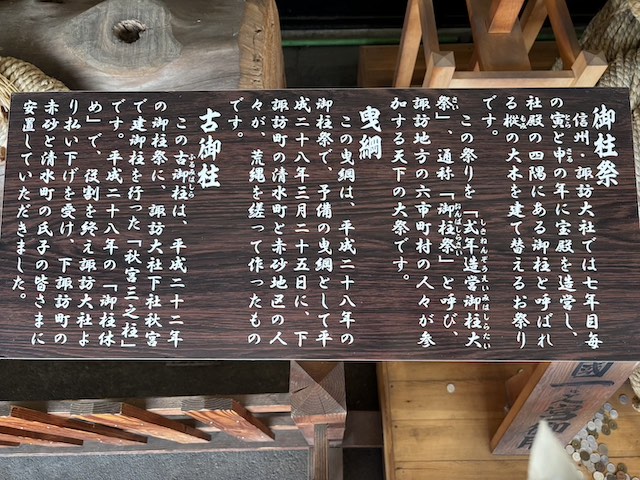 御柱祭
信州・諏訪大社では七年目毎
の寅と申の年に宝殿を造営し、
社殿の四隅にある御柱と呼ばれ
る樅の大木を建て替えるお祭り
です。
この祭りを「式年造営御柱大
祭」、通称「御柱祭」と呼び、
諏訪地方の六市町村の人々が参
加する天下の大祭です。
曳綱
この曳綱は、平成二十八年の
御柱祭で、予備の曳綱として平
成二十八年三月二十五日に、下
諏訪町の清水町と赤砂地区の人
々が、荒縄を縒って作ったもの
です。
古御柱
この古御柱は、平成二十二年
の御柱祭に、諏訪大社下社秋宮
で建御柱を行った「秋宮三之柱」
です。平成二十八年の「御柱休
め」で、役割を終え諏訪大社よ
り払い下げを受け、下諏訪町の
赤砂と清水町の氏子の皆さまに
安置していただきました。